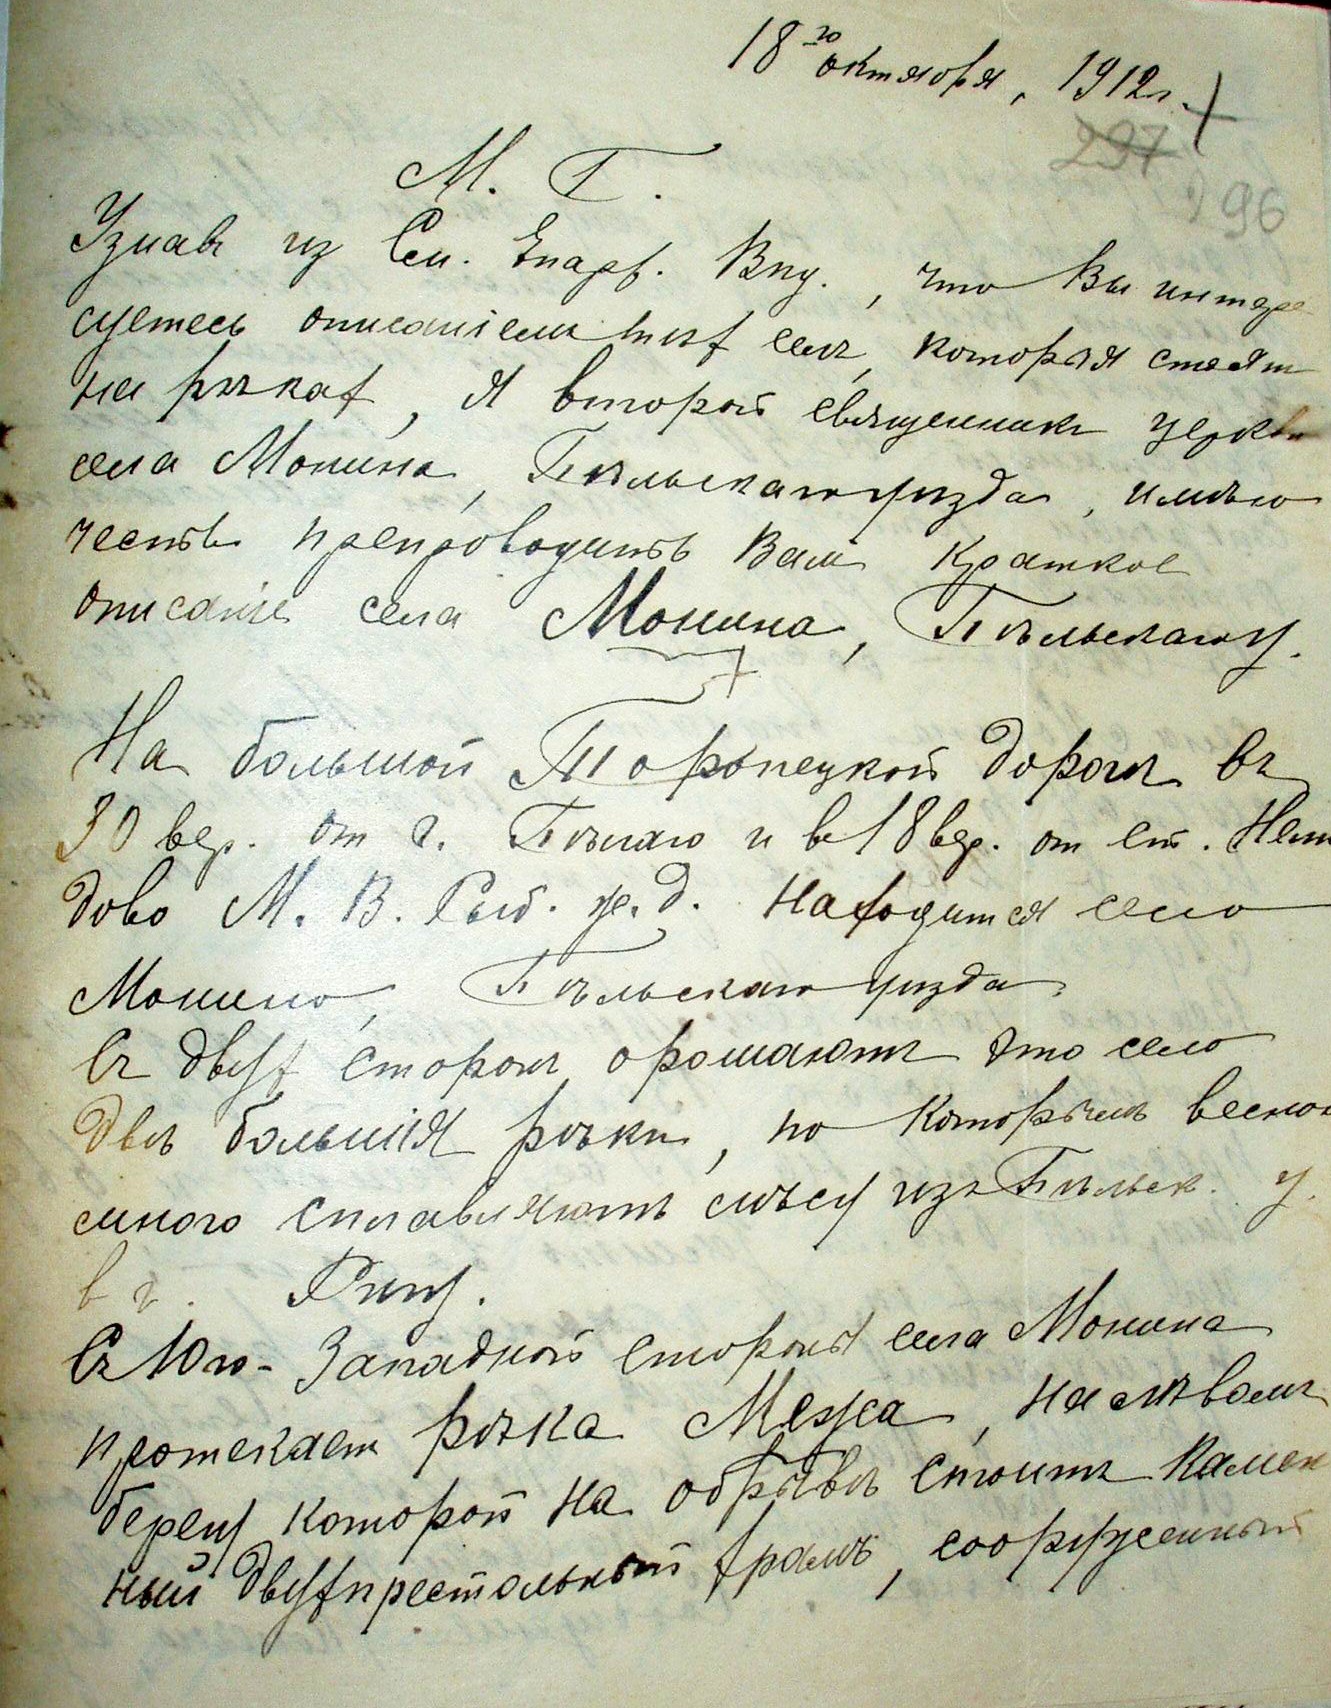 18го октября, 1912г.
297
196
М. Г.
Узнавъ из См. Епарх. Вѣд., что Вы интере
суетесь описаніемъ тѣх селъ, которыя стоят
на рѣках, я второй священникъ церкви
села Монина, Бѣльскаго уѣзда, имѣю
честь препроводить Вам краткое
описаніе села Монина, Бѣльскаго у.
На большой Торопецкой дорогѣ въ
30 вер. от г. Бѣлаго и в 18 вер. от ст. Нели
дово М. В. Рыб. ж. д. находится село
Монино, Бѣльскаго уѣзда.
Съ двух сторон орошаютъ это село
двѣ большія рѣчки, по которымъ весною
много сплавляютъ лѣсу изъ Бѣльск. у.
в г. Ригу.
Съ Юго-Западной стороны села Монина
протекает рѣчка Межа, на лѣвомъ
берегу которой на обрывѣ стоитъ камен
ный двухпрестольный храмъ, сооруженный